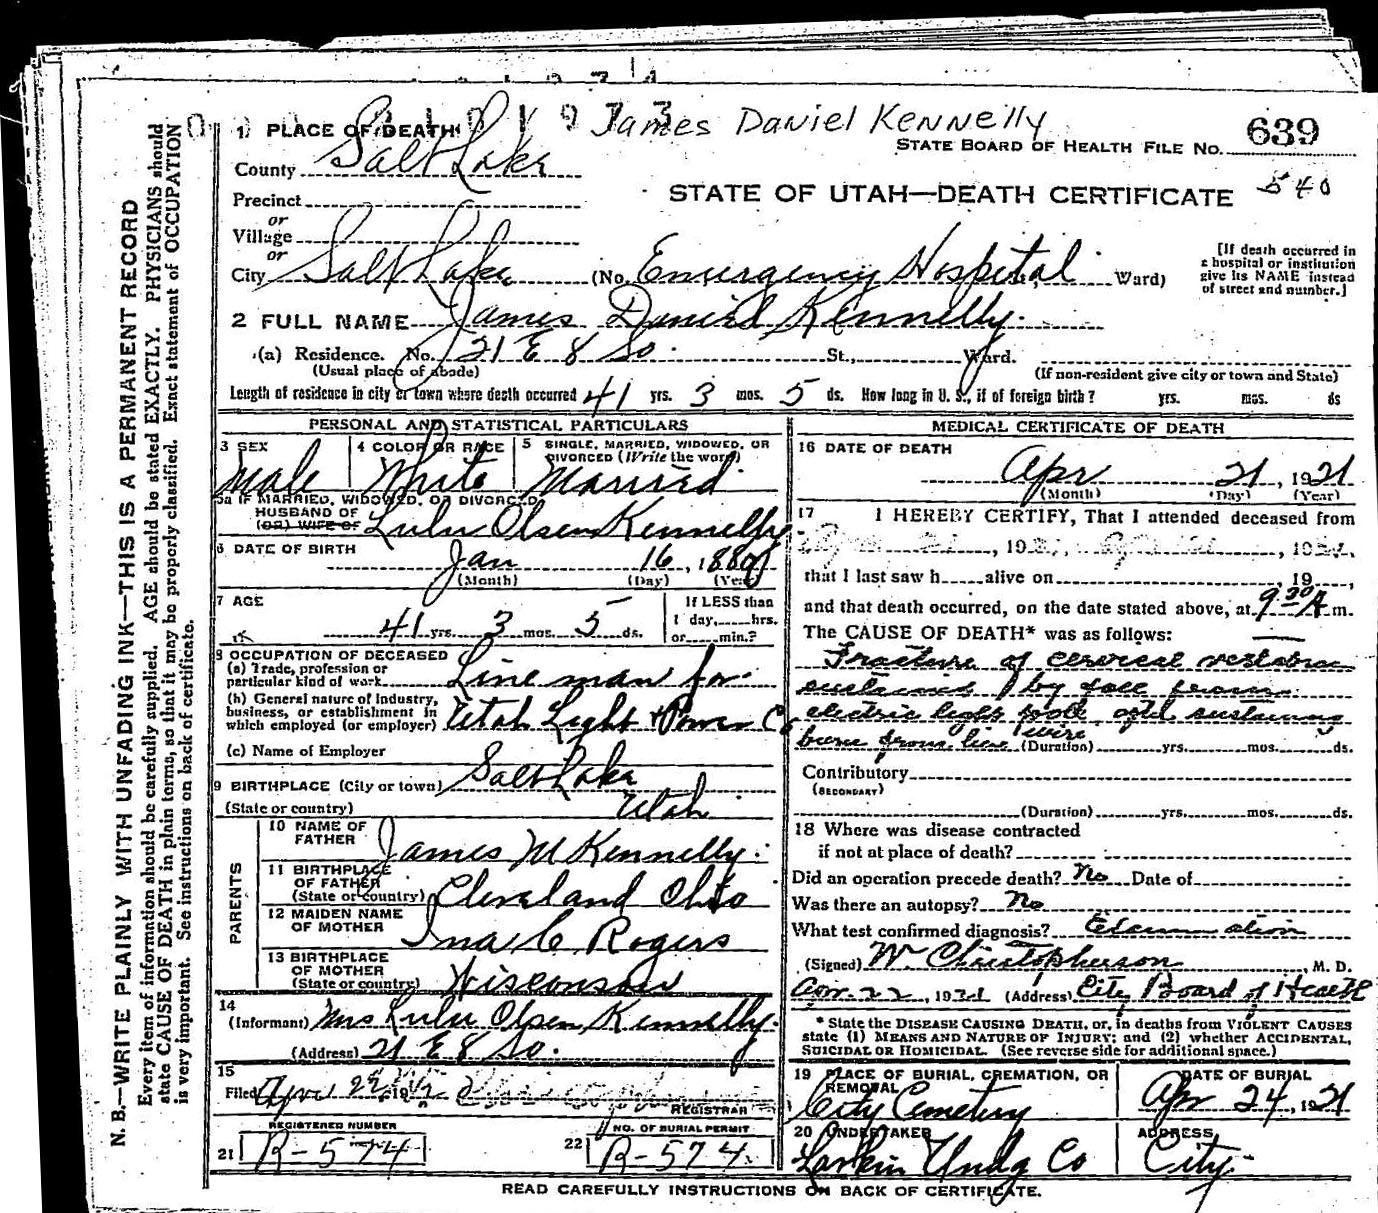 James Daniel Kennelly
639
1 PLACE OF DEATH
STATE BOARD OF HEALTH FILE No.
County Salt Lake
540
STATE OF UTAH—DEATH CERTIFICATE
Precinct
or
Village
or
City Salt Lake (No. Emergency Hospital Ward)
[If death occurred in
a hospital or institution
give its NAME instead
of street and number.]
2 FULL NAME James Daniel Kennelly
(a) Residence. No. 21 E 8 So. St., Ward.
(Usual place of abode) (If non-resident give city or town and State)
Length of residence in city or town where death occurred 41 yrs. 3 mos. 5 ds. How long in U. S., if of foreign birth? yrs. mos. ds
PERSONAL AND STATISTICAL PARTICULARS
3 SEX Male
4 COLOR OR RACE White
5 SINGLE, MARRIED, WIDOWED, OR
DIVORCED (Write the word)
Married
5a IF MARRIED, WIDOWED, OR DIVORCED
HUSBAND OF
(OR) WIFE OF Lulu Olsen Kennelly
6 DATE OF BIRTH
Jan 16, 1880
(Month) (Day) (Year)
7 AGE
41 yrs. 3 mos. 5 ds.
If LESS than
1 day, hrs.
or min.?
8 OCCUPATION OF DECEASED
(a) Trade, profession or
particular kind of work Line man for
(b) General nature of industry,
business, or establishment in
which employed (or employer) Utah Light & Power Co
(c) Name of Employer
9 BIRTHPLACE (City or town) Salt Lake
(State or country) Utah
PARENTS
10 NAME OF
FATHER James M Kennelly
11 BIRTHPLACE
OF FATHER
(State or country) Cleveland Ohio
12 MAIDEN NAME
OF MOTHER Ina C Rogers
13 BIRTHPLACE
OF MOTHER
(State or country) Wisconsin
14
(Informant) Mrs Lulu Olsen Kennelly
(Address) 21 E 8 So.
15
Filed Apr 22
REGISTRAR
REGISTERED NUMBER
21 R-574
NO. OF BURIAL PERMIT
22 R-574
MEDICAL CERTIFICATE OF DEATH
16 DATE OF DEATH
Apr 21, 1921
(Month) (Day) (Year)
17 I HEREBY CERTIFY, That I attended deceased from
that I last saw h alive on , 19 ,
and that death occurred, on the date stated above, at 9 30 A m.
The CAUSE OF DEATH* was as follows:
Fracture of cervical vertebrae
sustained by fall from
electric light pole after sustaining
burn from live wire (Duration) yrs. mos. ds.
Contributory
(SECONDARY)
(Duration) yrs. mos. ds.
18 Where was disease contracted
if not at place of death?
Did an operation precede death? No Date of
Was there an autopsy? No
What test confirmed diagnosis? Examination
(Signed) W Christopherson, M. D.
Apr. 22, 1921 (Address) City Board of Health
* State the DISEASE CAUSING DEATH, or, in deaths from VIOLENT CAUSES
state (1) MEANS AND NATURE OF INJURY; and (2) whether ACCIDENTAL,
SUICIDAL OR HOMICIDAL. (See reverse side for additional space.)
19 PLACE OF BURIAL, CREMATION, OR
REMOVAL
City Cemetery
DATE OF BURIAL
Apr 24, 1921
20 UNDERTAKER
Larkin Undg Co
ADDRESS
City
READ CAREFULLY INSTRUCTIONS ON BACK OF CERTIFICATE.
N. B.—WRITE PLAINLY WITH UNFADING INK—THIS IS A PERMANENT RECORD
Every item of information should be carefully supplied. AGE should be stated EXACTLY. PHYSICIANS should
state CAUSE OF DEATH in plain terms, so that it may be properly classified. Exact statement of OCCUPATION
is very important. See instructions on back of certificate.